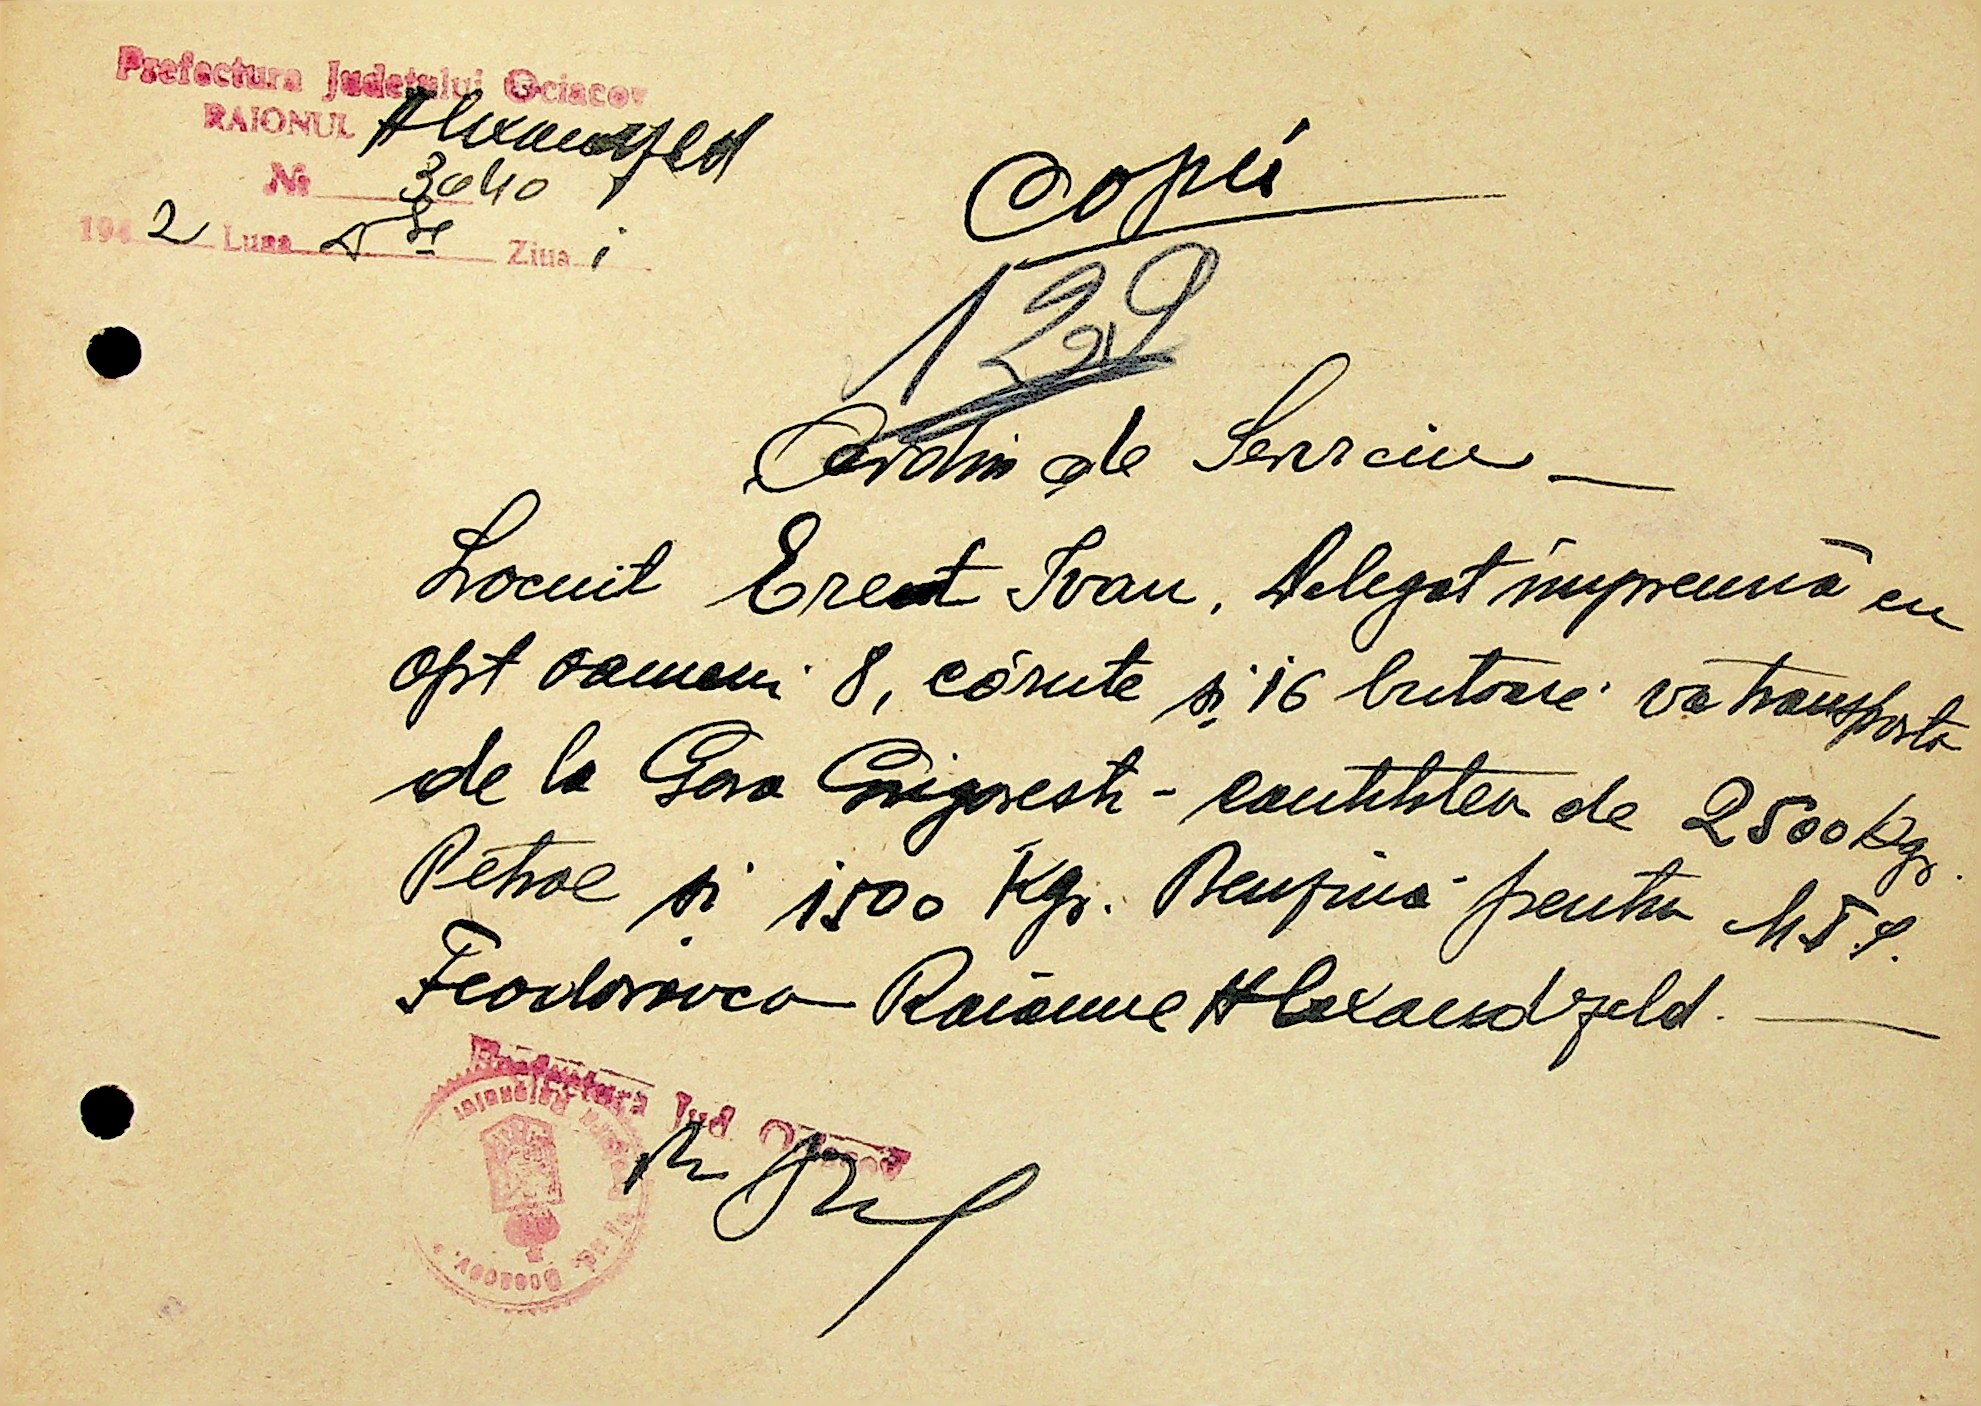 Prefectura Judetului Ociacov
RAIONUL Alexandfeld
№ 3040
1942 Luna Ziua 1
Copie
129
Ordin de Serviciu
Locuit Ivan, Delegat împreună cu
opt oameni 8, cărute și 16 butoare va transporta
de la Gara Grigoresti - cantitatea de 2500 Kgr.
Petrol și 1500 Kgr. Benzină pentru M.T.S.
Feodorovca Raionul Alexandfeld.
Prefectura Jud. Ociacov